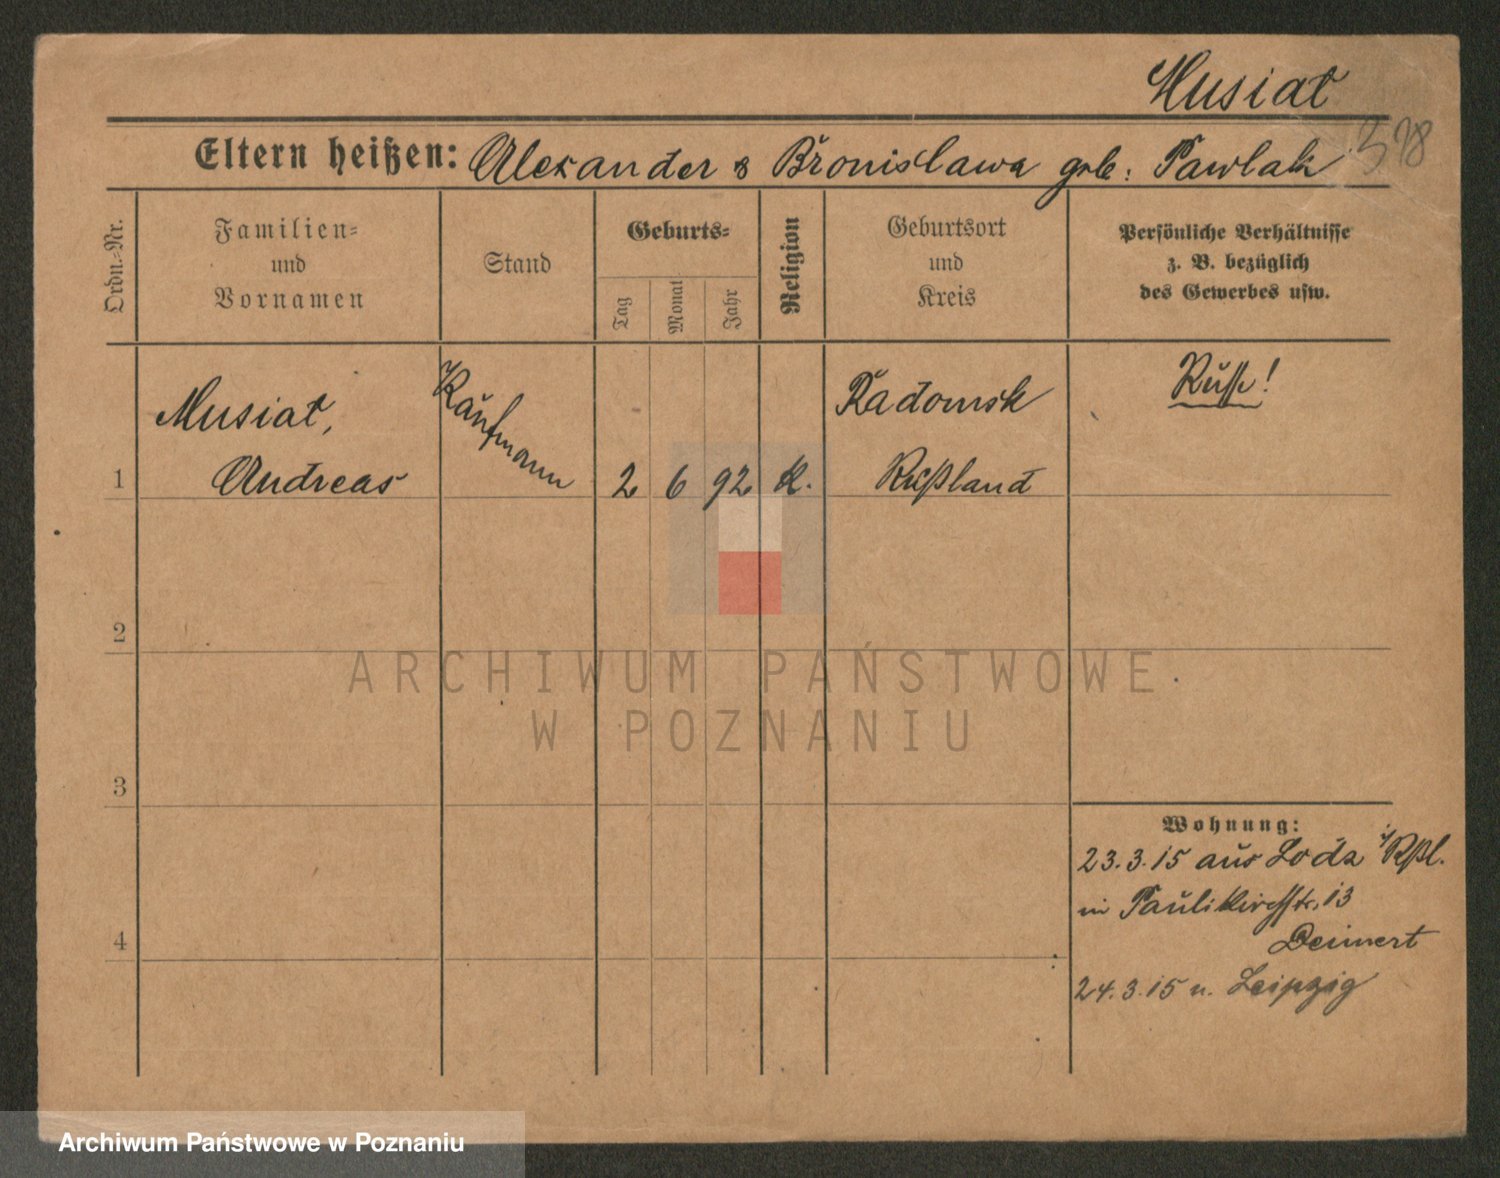 Musiat
578
Eltern heißen: Alexander & Bronislawa geb: Pawlak
Ordn.-Nr.
Familien-
und
Vornamen
Stand
Geburts-
Tag
Monat
Jahr
Religion
Geburtsort
und
Kreis
Persönliche Verhältnisse
z. B. bezüglich
des Gewerbes usw.
1
Musiat,
Andreas
Kaufmann
2 6 92 K.
Radomsk
Rußland
Russe!
2
3
4
Wohnung:
23.3.15 aus Lodz i/Rßl.
in Paulikirchstr. 13
Deimert
24.3.15 n. Leipzig
ARCHIWUM PAŃSTWOWE
W POZNANIU
Archiwum Państwowe w Poznaniu